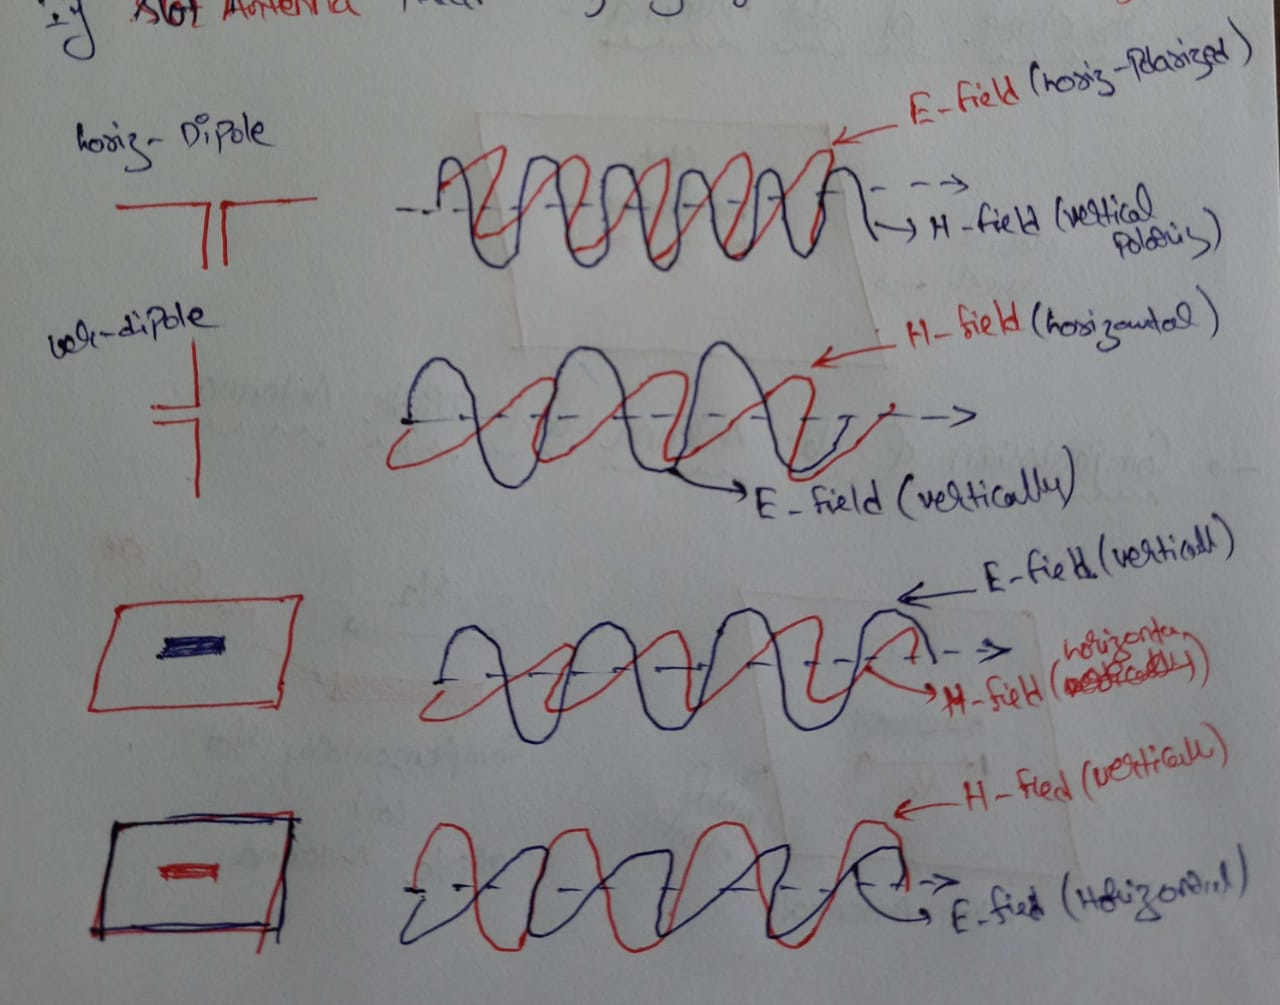 Slot Antenna
horiz- Dipole
E-field (horiz-Polarized)
H-field (vertical
Polariz)
ver-dipole
H-field (horizontal)
E-field (vertically)
E-field (vertical)
horizonta
H-field
H-fied (vertical)
E-fied (Horizontal)